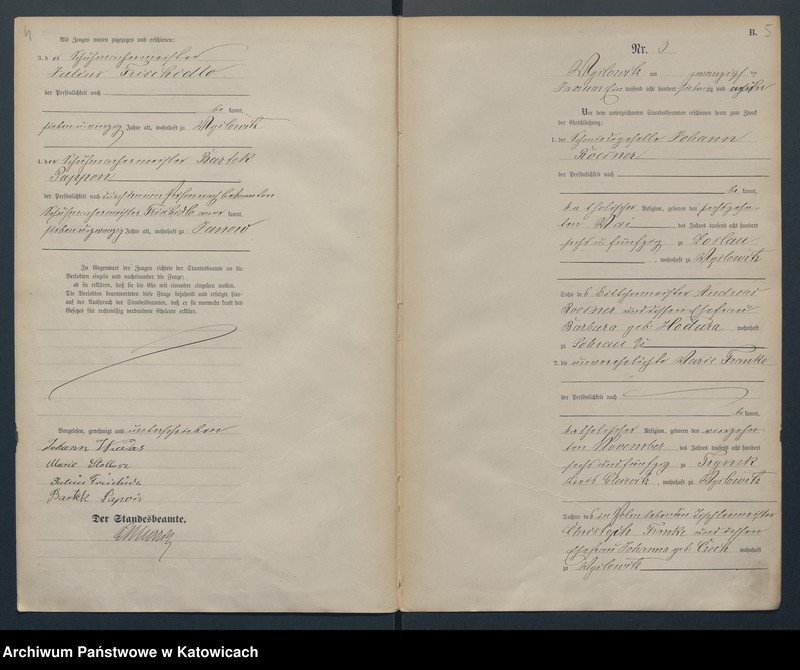 4
Als Zeugen waren zugezogen und erschienen:
3. der Schuhmachermeister
Julius
der Persönlichkeit nach
be kannt,
sieben und zwanzig Jahre alt, wohnhaft zu Myslowitz
4. der Schuhmachermeister Bartek
der Persönlichkeit nach durch den
Schuhmachermeister kannt,
sieben und zwanzig Jahre alt, wohnhaft zu Janow
In Gegenwart der Zeugen richtete der Standesbeamte an die
Verlobten einzeln und nacheinander die Frage:
ob sie erklären, daß sie die Ehe mit einander eingehen wollen.
Die Verlobten beantworteten diese Frage bejahend und erfolgte hier-
auf der Ausspruch des Standesbeamten, daß er sie nunmehr kraft des
Gesetzes für rechtmäßig verbundene Eheleute erkläre.
Vorgelesen, genehmigt und unterschrieben
Johann
Marie
Julius
Bartek
Der Standesbeamte.
B. 5
Nr. 3
Myslowitz am zwanzigsten
Januar tausend acht hundert siebenzig und
Vor dem unterzeichneten Standesbeamten erschienen heute zum Zweck
der Eheschließung:
1. der Schmiedegeselle Johann
Roesner
der Persönlichkeit nach
be kannt,
katholischer Religion, geboren den sechszehn-
ten Mai des Jahres tausend acht hundert
sechs und fünfzig zu Loslau
, wohnhaft zu Myslowitz
Sohn des Böttchermeister Andreas
Roesner und dessen Ehefrau
Barbara geb. Hodura wohnhaft
zu Sohrau
2. die unverehelichte Marie Franke
der Persönlichkeit nach
be kannt,
katholischer Religion, geboren den
ten November des Jahres tausend acht hundert
sechs und fünfzig zu Trynek
Kreis Gleiwitz, wohnhaft zu Myslowitz
Tochter des in Polen lebenden Tischlermeister
Christoph Franke und dessen
Ehefrau Johanna geb. wohnhaft
zu Myslowitz
Archiwum Państwowe w Katowicach